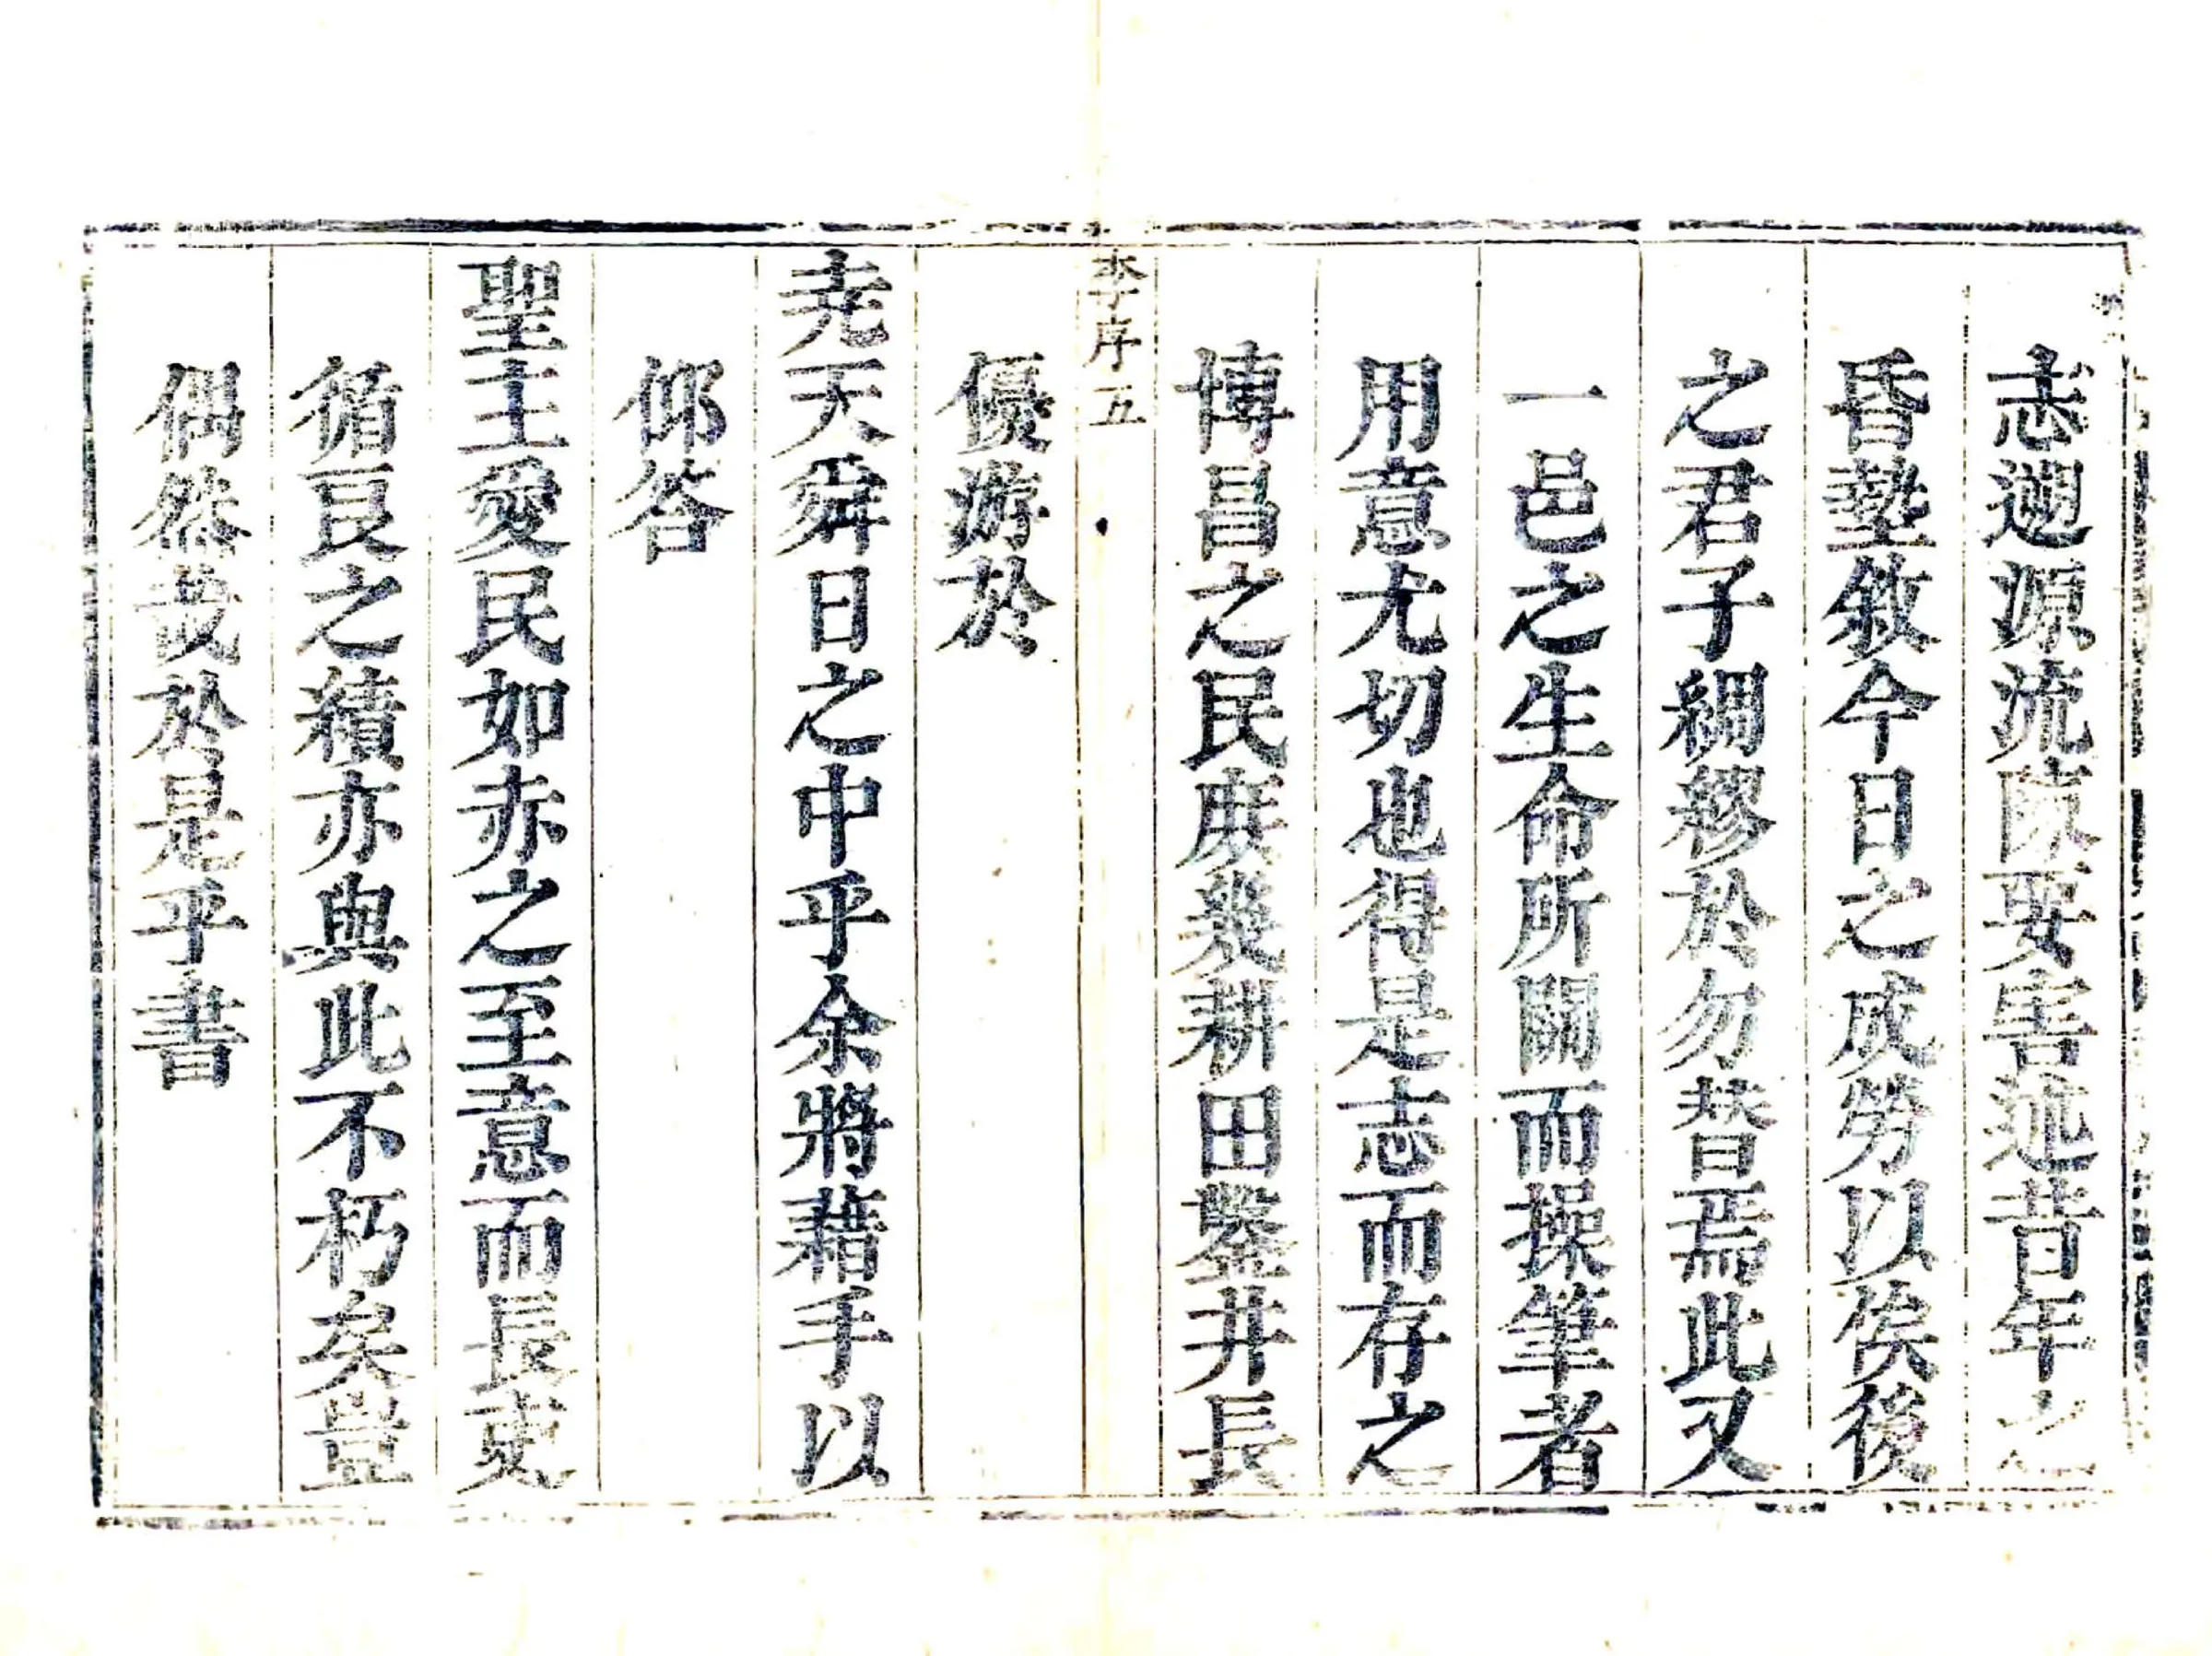 志遡源流陳要害述昔年之
昏墊敘今日之成勞以俟後
之君子綢繆於勿替焉此又
一邑之生命所關而操筆者
用意尤切也得是志而存之
博昌之民庶幾耕田鑿井長
優游於
李序 五
尭天舜日之中乎余將藉手以
仰答
聖主愛民如赤之至意而長吏
循良之績亦與此不朽矣豈
偶然哉於是乎書